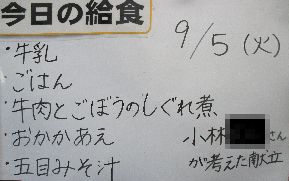 今日の給食
9/5(火)
・牛乳
ごはん
・牛肉とごぼうのしぐれ煮
・おかかあえ
・五目みそ汁
小林 さん
が考えた献立